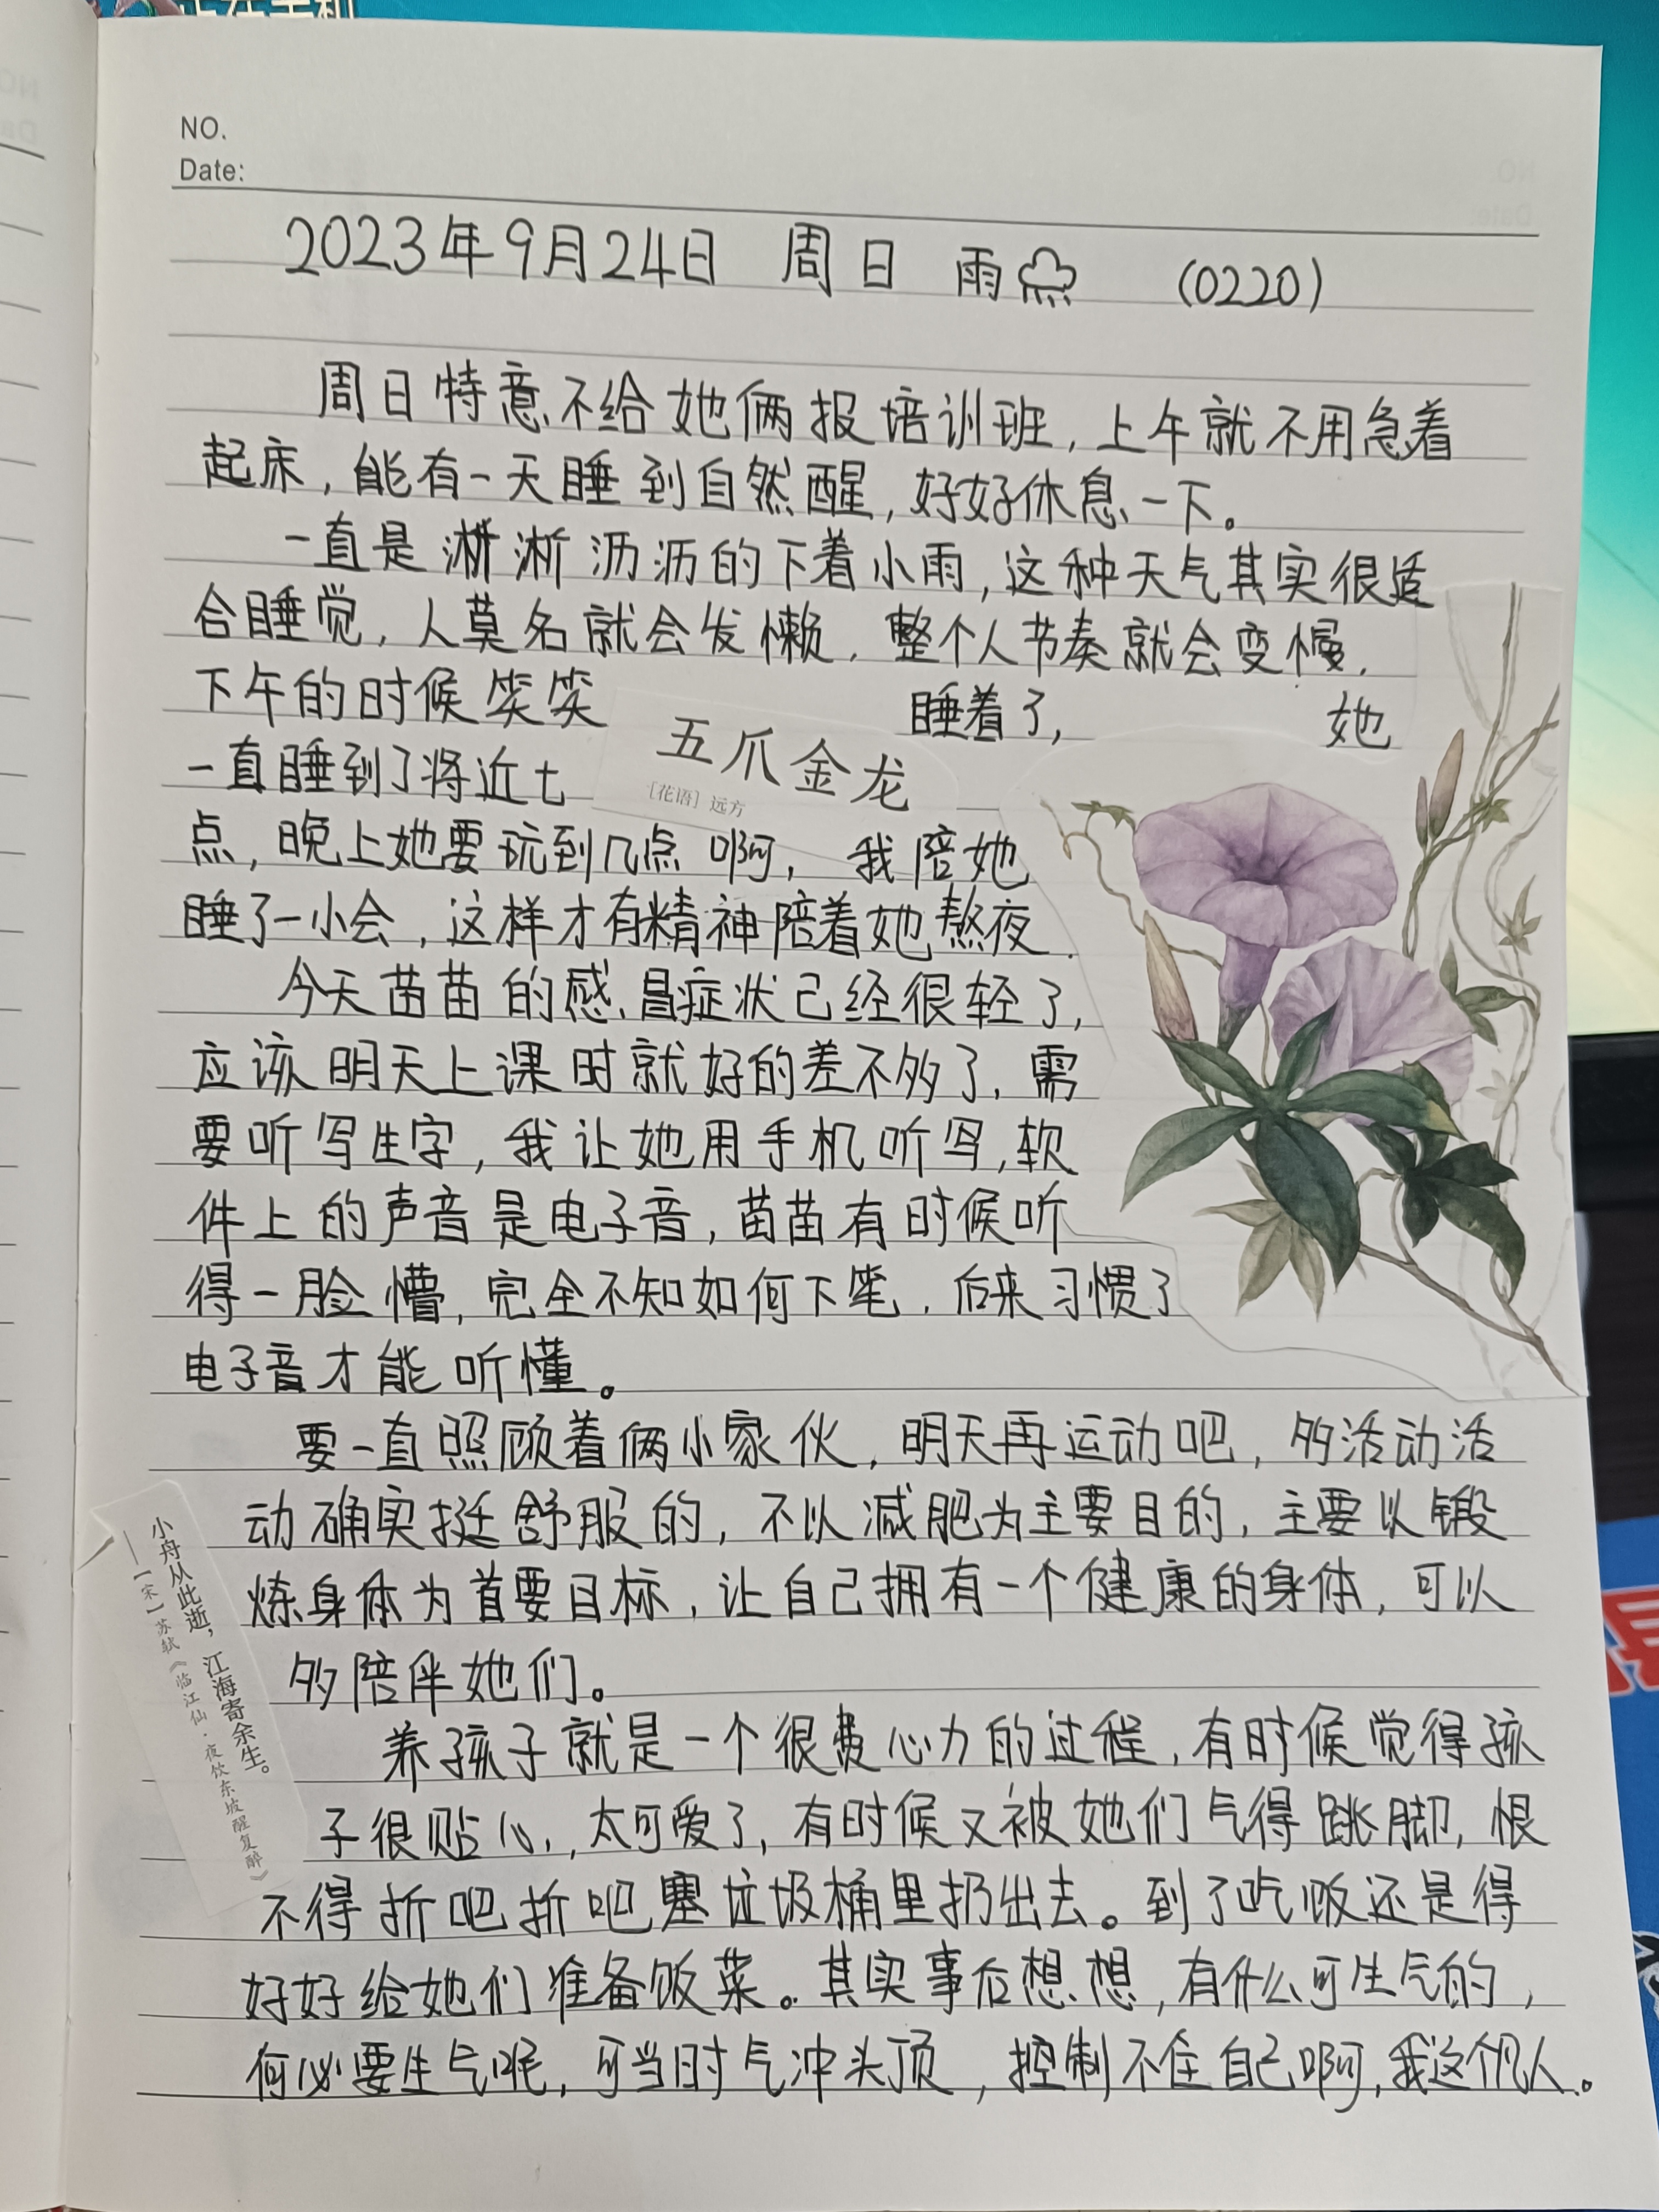 NO.
Date:
2023年9月24日 周日 雨 (0220)
周日特意不给她俩报培训班,上午就不用急着
起床,能有一天睡到自然醒,好好休息一下。
一直是淅淅沥沥的下着小雨,这种天气其实很适
合睡觉,人莫名就会发懒,整个人节奏就会变慢.
下午的时候笑笑 睡着了, 她
五爪金龙
[花语] 远方
一直睡到了将近七
点,晚上她要玩到几点啊,我陪她
睡了一小会,这样才有精神陪着她熬夜.
今天苗苗的感冒症状已经很轻了,
应该明天上课时就好的差不多了,需
要听写生字,我让她用手机听写,软
件上的声音是电子音,苗苗有时候听
得一脸懵,完全不知如何下笔,后来习惯了
电子音才能听懂。
要一直照顾着俩小家伙,明天再运动吧,多活动活
动确实挺舒服的,不以减肥为主要目的,主要以锻
炼身体为首要目标,让自己拥有一个健康的身体,可以
多陪伴她们。
小舟从此逝,江海寄余生。
——[宋]苏轼《临江仙·夜饮东坡醒复醉》
养孩子就是一个很费心力的过程,有时候觉得孩
子很贴心,太可爱了,有时候又被她们气得跳脚,恨
不得折吧折吧塞垃圾桶里扔出去。到了吃饭还是得
好好给她们准备饭菜。其实事后想想,有什么可生气的,
何必要生气呢,可当时气冲头顶,控制不住自己啊,我这个凡人。